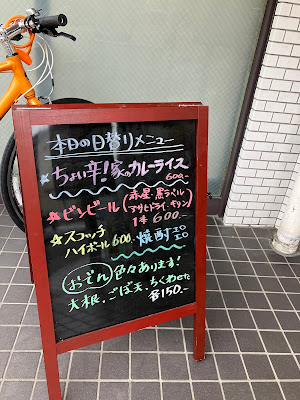 本日の日替りメニュー
☆ちょい辛!家のカレーライス
600.-
☆ビンビール(赤星、黒ラベル
アサヒドライ、キリン)
1本 600.-
☆スコッチ
ハイボール600. 焼酎
おでん 色々あります!
大根、ごぼ天、ちくわetc
各¥150.-